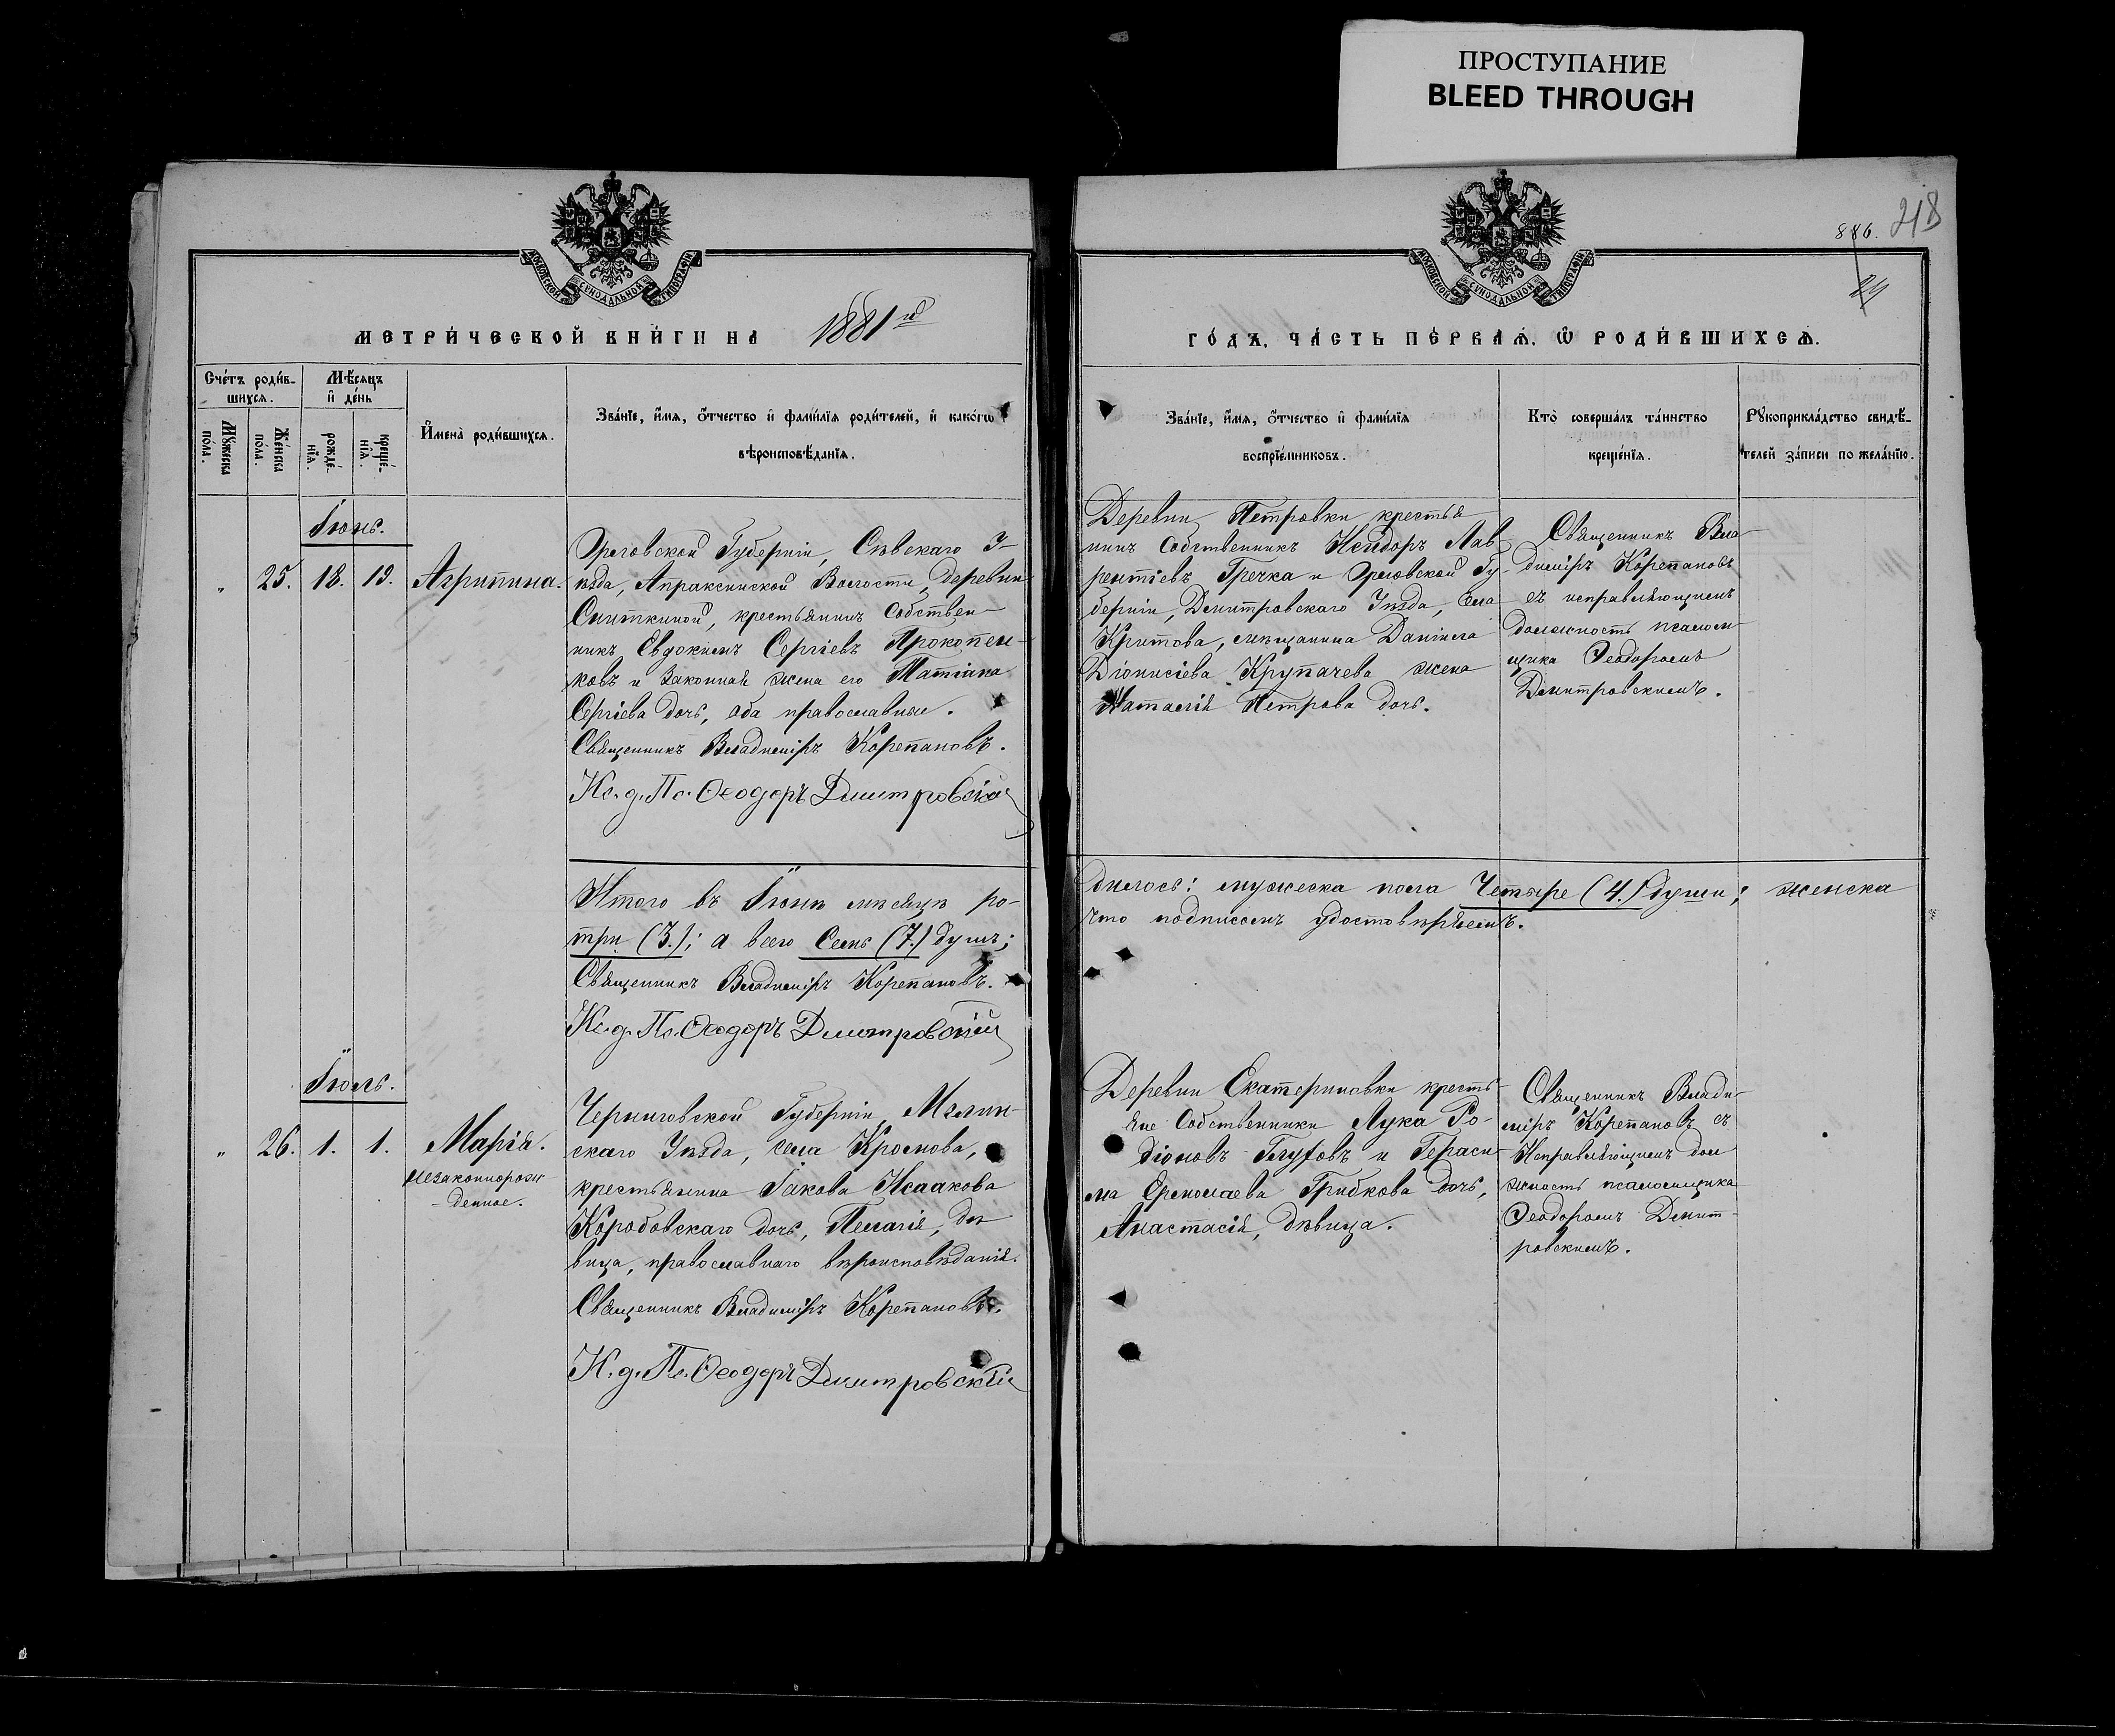 ПРОСТУПАНИЕ
BLEED THROUGH
886. 218
МОСКОВСКОЙ СѴНОДАЛЬНОЙ ТИПОГРАФІИ
МОСКОВСКОЙ СѴНОДАЛЬНОЙ ТИПОГРАФІИ
МЕТРИ́ЧЕСКОЙ КНИ́ГИ НА 1881й
ГО́ДЪ, ЧА́СТЬ ПЕ́РВАЯ, Ѡ РОДИ́ВШИХСЯ.
Сче́тъ роди́в-
шихся.
Мꙋ́жеска по́ла.
Же́нска по́ла.
Мѣ́сяцъ
и҆ де́нь
рожде́-
нїя.
креще́-
нїя.
И҆мена̀ роди́вшихся.
Зва́нїе, и҆́мя, ѻ҆́тчество и҆ фами́лїя роди́телей, и҆ како́гѡ
вѣроисповѣ́данїя.
Зва́нїе, и҆́мя, ѻ҆́тчество и҆ фами́лїя
воспрїе́мниковъ.
Кто̀ соверша́лъ та́инство
креще́нїя.
Рꙋкоприкла́дство свидѣ́-
телей за́писи по жела́нїю.
Іюнь.
" 25. 18. 19. Агрипина.
Орловской Губерніи, Сѣвскаго У-
ѣзда, Апраксинской Волости, деревни
Сниткиной, крестьянинъ собствен-
никъ Евдокимъ Сергіевъ Прокопен-
ковъ и законная жена его
Сергіева дочь, оба православные.
Священникъ Владиміръ Корепановъ.
Ис. д. Пс. Ѳеодоръ Дмитровскій
Деревни Петровки крестья
нинъ собственникъ Исидоръ Лав-
рентіевъ Гречка и Орловской Гу-
берніи, Дмитровскаго Уѣзда, села
Критова, мѣщанина Даніила
Діонисіева Крупачева жена
Наталія Петрова дочь.
Священникъ Вла-
диміръ Корепановъ
съ исправляющимъ
должность псалом-
щика Ѳеодоромъ
Дмитровскимъ.
Итого въ Іюнѣ мѣсяцѣ ро-
дилось: мужеска пола Четыре (4.) души; женска
три (3.); а всего Семь (7.) душъ;
Что подписомъ удостовѣряемъ.
Священникъ Владиміръ Корепановъ.
Ис. д. Пс. Ѳеодоръ Дмитровскій
Іюль.
" 26. 1. 1. Марія.
Незаконнорож
денное.
Черниговской Губерніи, Мглин-
скаго Уѣзда, села Кроснова,
крестьянина Іакова Исаакова
Коробовскаго дочь, Пелагія, дѣ
вица, православнаго вѣроисповѣданія.
Священникъ Владиміръ Корепановъ.
И. д. Пс. Ѳеодоръ Дмитровскій
Деревни Екатериновки кресть-
яне собственники Лука Ро-
діоновъ и Гераси
ма Ермолаева Грибкова дочь,
Анастасія, дѣвица.
Священникъ Влади-
міръ Корепановъ съ
Исправляющимъ дол
жность псаломщика
Ѳеодоромъ Дмит-
ровскимъ.